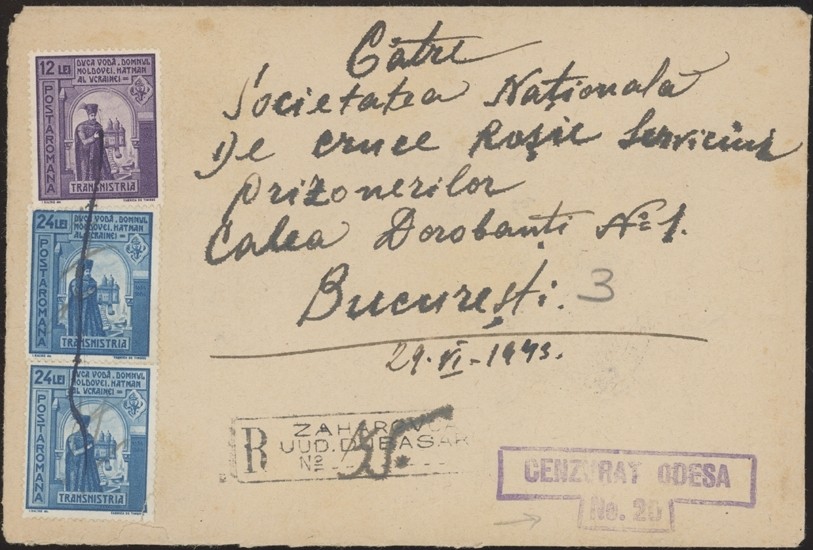 12 LEI
DUCA VODĂ, DOMNUL
MOLDOVEI, HATMAN
AL UCRAINEI
POSTA ROMANA
TRANSNISTRIA
24 LEI
DUCA VODĂ, DOMNUL
MOLDOVEI, HATMAN
AL UCRAINEI
POSTA ROMANA
TRANSNISTRIA
24 LEI
DUCA VODĂ, DOMNUL
MOLDOVEI, HATMAN
AL UCRAINEI
POSTA ROMANA
TRANSNISTRIA
Către
Societatea Naţională
De cruce Roşie Serviciul
prizonerilor
Calea Dorobanţi No 1.
Bucureşti. 3
29.VI-1943.
R
ZAHAROVCA
JUD. DUBASAR
No
CENZURAT ODESA
No. 20